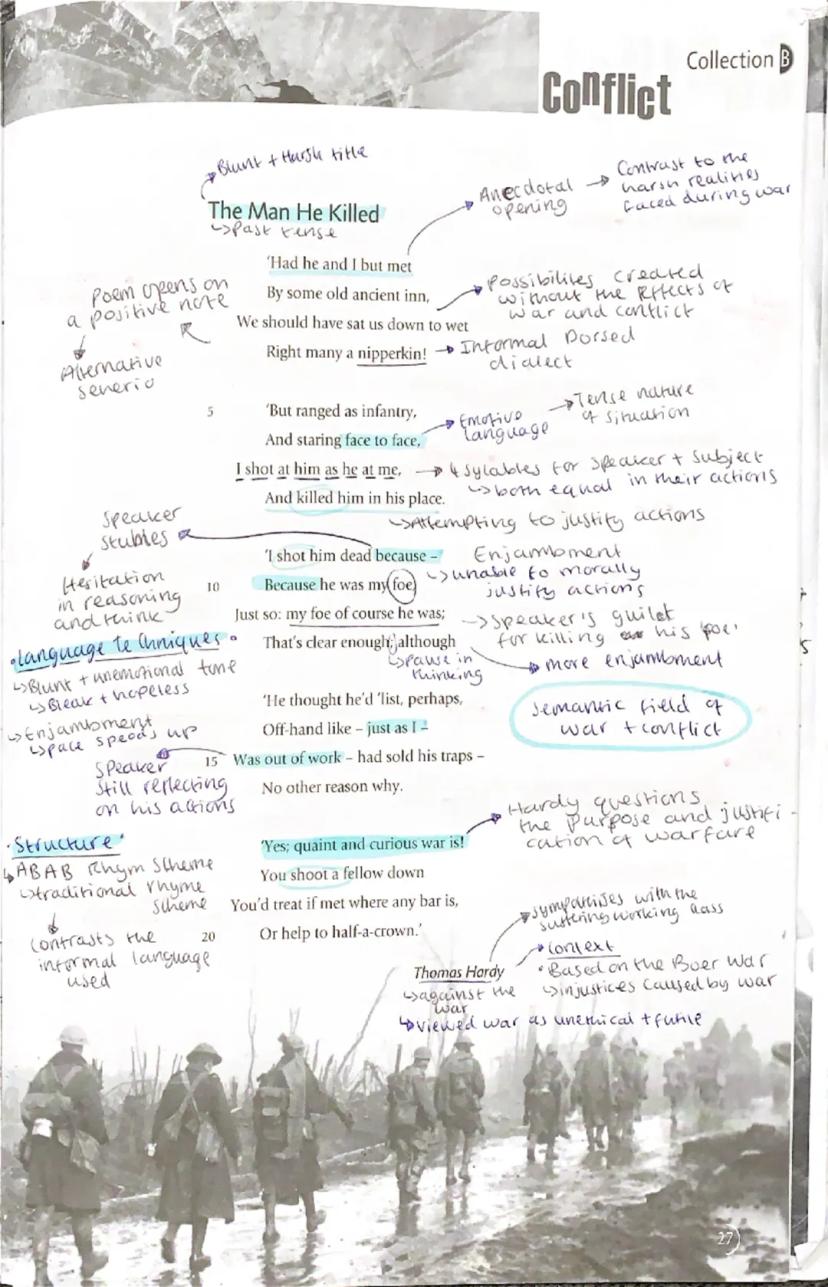 Collection B
Conflict
Blunt + Harsh title
The Man He Killed
↳past tense
Anecdotal
opening
→ Contrast to the
harsh realities
faced during war
'Had he and I but met
By some old ancient inn,
We should have sat us down to wet
Right many a nipperkin!
Poem opens on
a positive note
Alternative
senerio
Possibilites created
without the effects of
war and conflict
→ Informal Dorsed
dialect
5
'But ranged as infantry,
And staring face to face,
I shot at him as he at me,
And killed him in his place.
Emotive
language
Tense nature
of situation
→ 4 sylables for speaker + subject
↳both equal in their actions
↳Attempting to justify actions
Speaker
stubles
Hesitation
in reasoning
and think
'I shot him dead because –
10
Because he was my foe,
Just so: my foe of course he was;
That's clear enough; although
Enjambment
↳unable to morally
justify actions
→ Speaker's guilt
for killing his foe'
↳pause in
thinking
more enjambment
• Language Techniques •
↳Blunt + unemotional tone
↳Bleak + hopeless
↳Enjambment
↳pace speeds up
Speaker
still reflecting
on his actions
'He thought he'd 'list, perhaps,
Off-hand like – just as I –
15
Was out of work – had sold his traps –
No other reason why.
Semantic field of
war + conflict
'Yes; quaint and curious war is!
You shoot a fellow down
You'd treat if met where any bar is,
20
Or help to half-a-crown.'
Hardy questions
the purpose and justifi-
cation of warfare
• Structure •
↳ABAB Rhym Scheme
↳traditional rhyme
scheme
Contrasts the
informal language
used
Thomas Hardy
↳against the
war
↳viewed war as unethical + futile
sympathises with the
suffering working class
Context
• Based on the Boer War
↳injustices caused by war
27